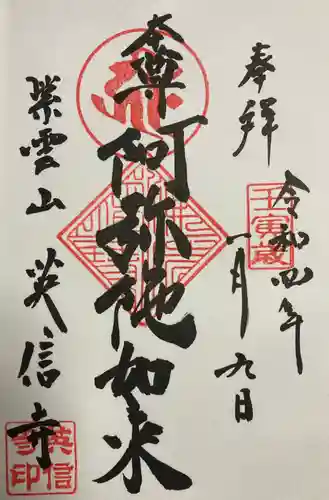 奉拝
令和四年
一月九日
壬寅歳
本尊
阿弥陀如来
紫雲山
英信寺
英信
寺印